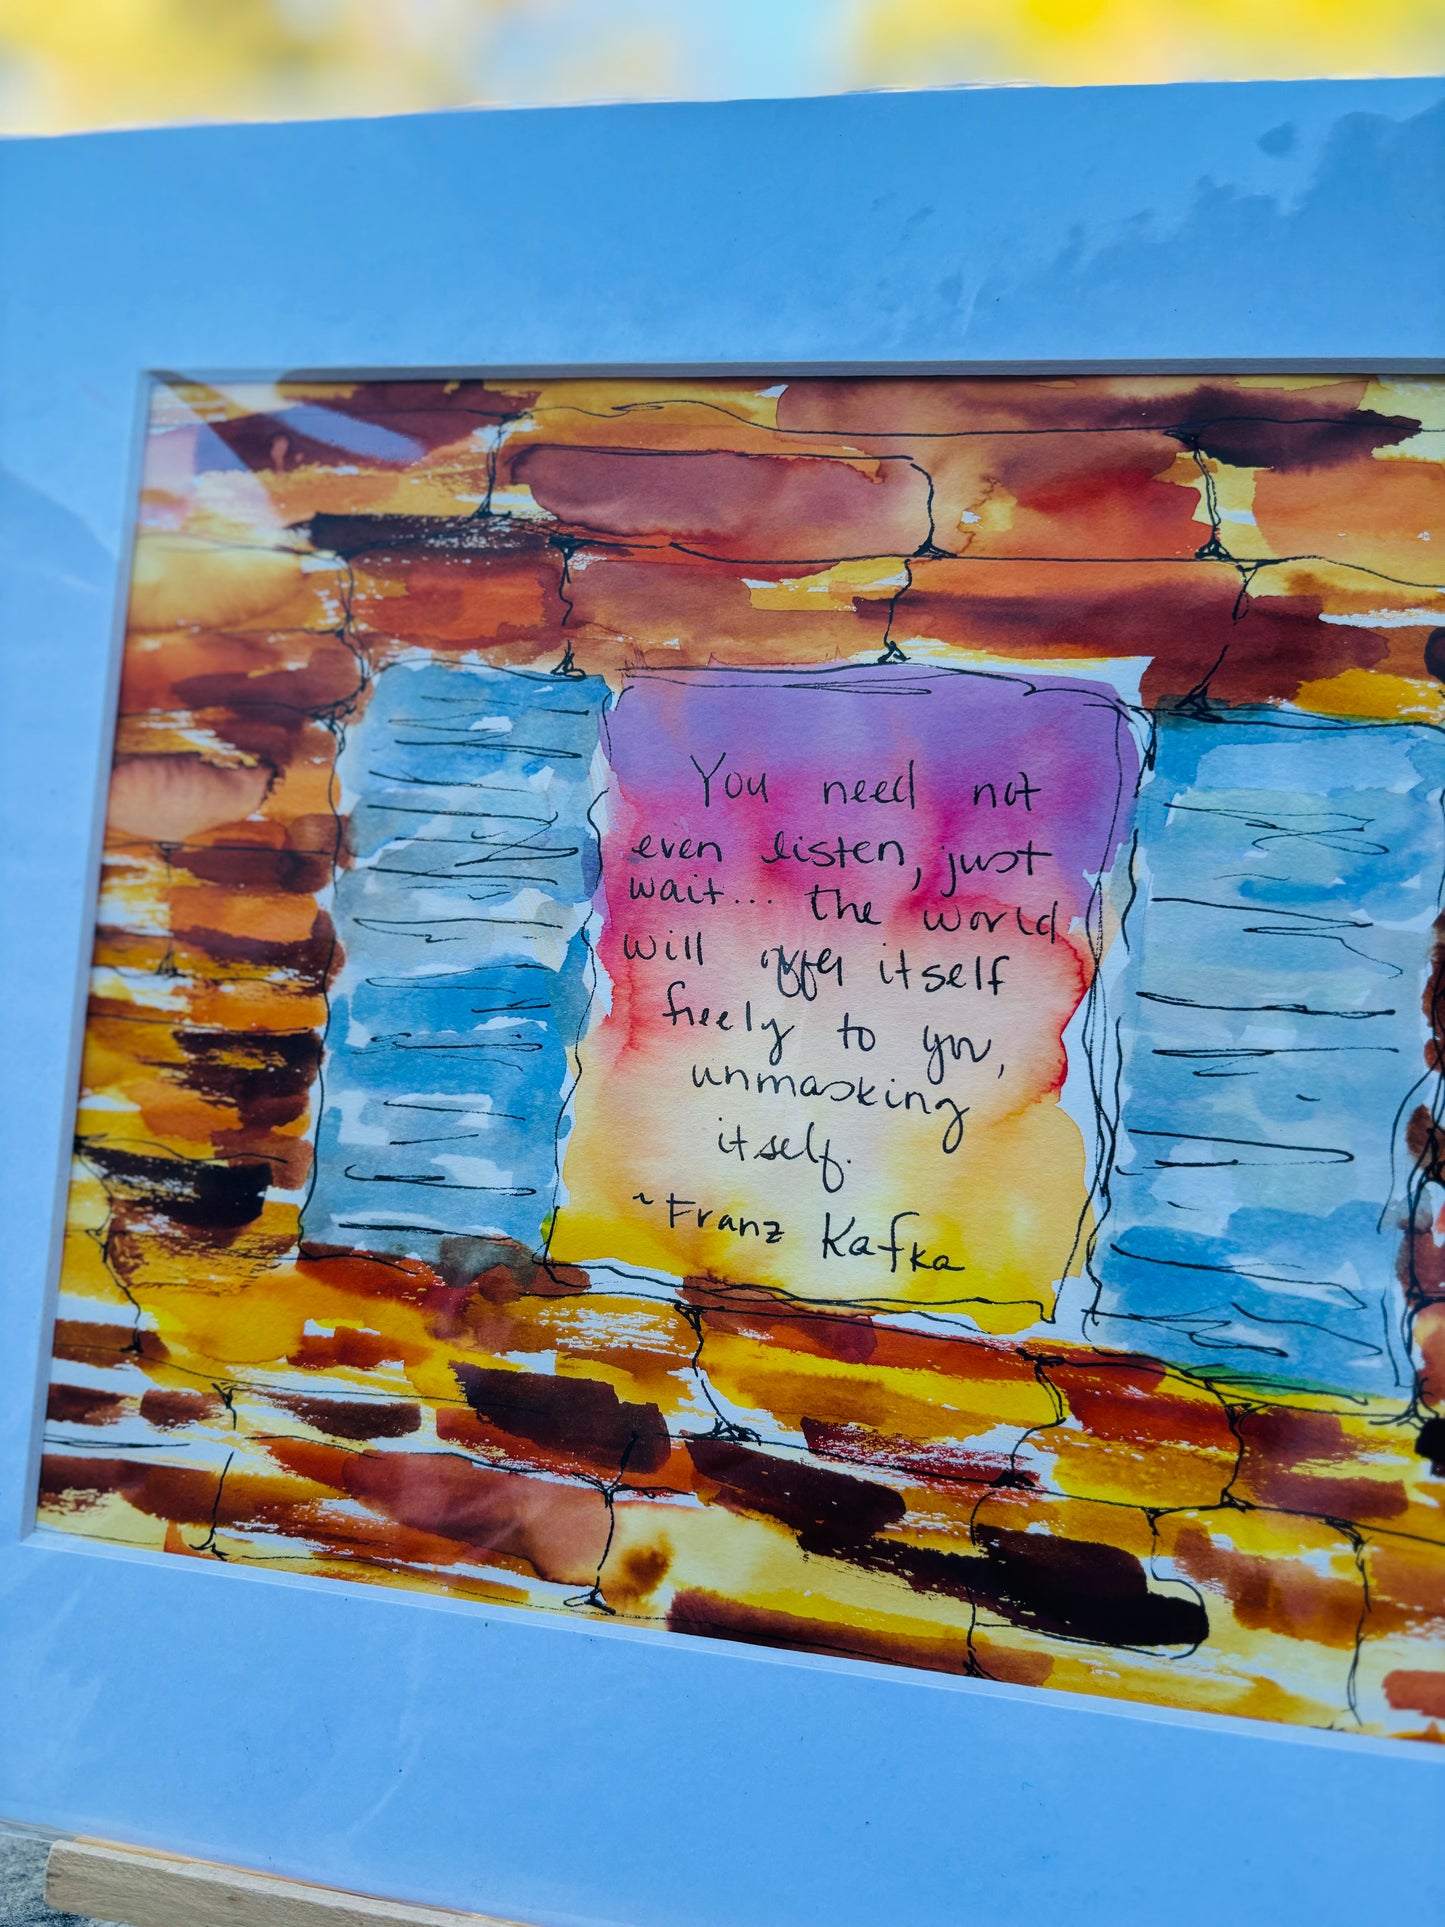 You need not
even listen, just
wait... the world
will offer itself
freely to you,
unmasking
itself.
~Franz Kafka